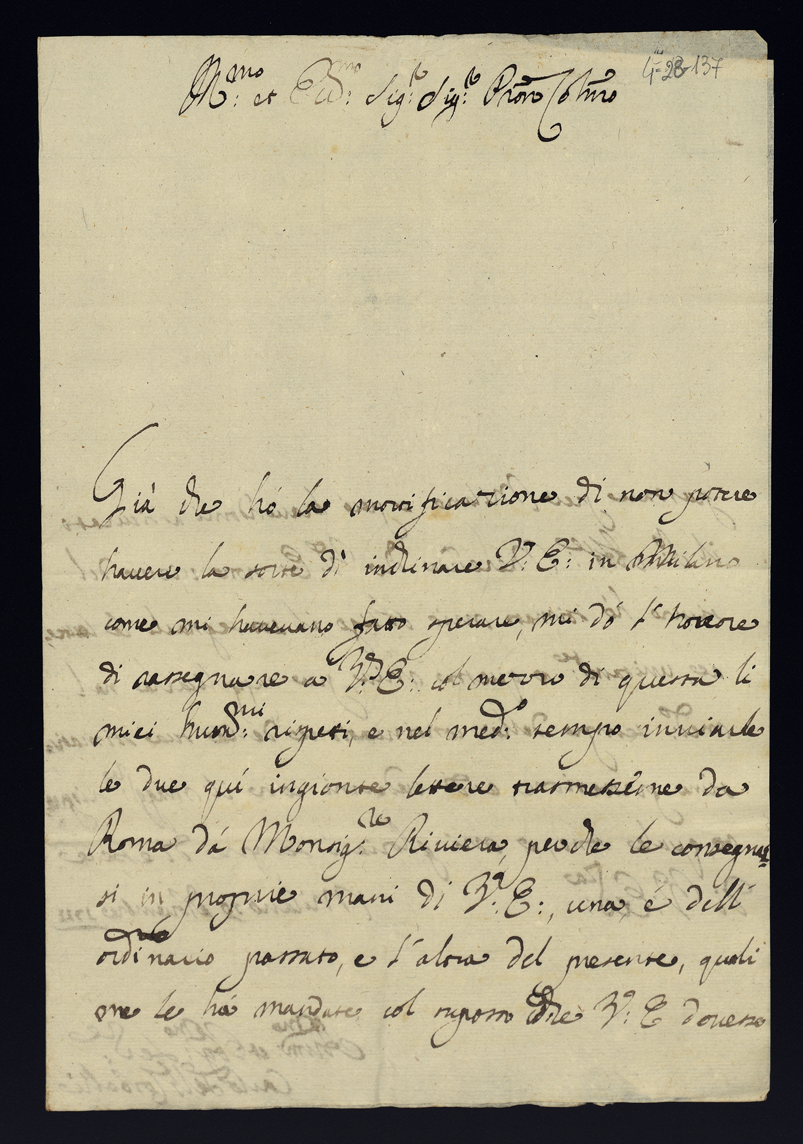 4-28-137
Ill:mo et Ecc:mo Sig:re Sig:re Pron Colmo
Già che hò la mortificatione di non potere
havere la sorte di inchinare V:E: in Milano
come mi havevano fatto sperare, mi dò l'honore
di rassegnare a V:E: col mezzo di questa li
miei humil:mi rispeti, e nel med:o tempo inviarle
le due quì ingionte lettere trasmessème da
Roma dà Monsig:re Riviera, perche le consegnas
si in proprie mani di V:E:, una, é dell'
ordinario passato, e l'altra del presente, quali
me le hà mandate col suposto che V:E dovesse